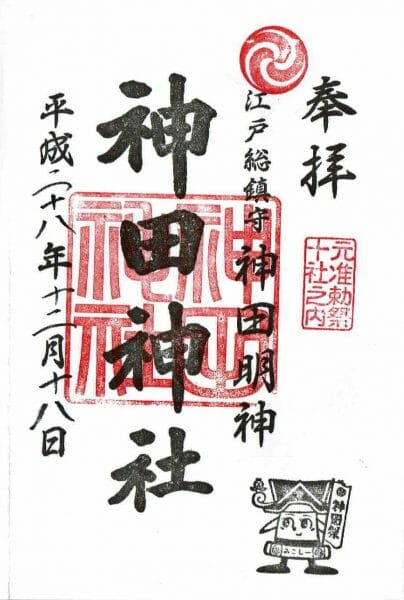 奉拝
元准勅祭
十社之内
江戸総鎮守
神田明神
神田神社
神田神社
平成二十八年十二月十八日
神田祭
みこしー